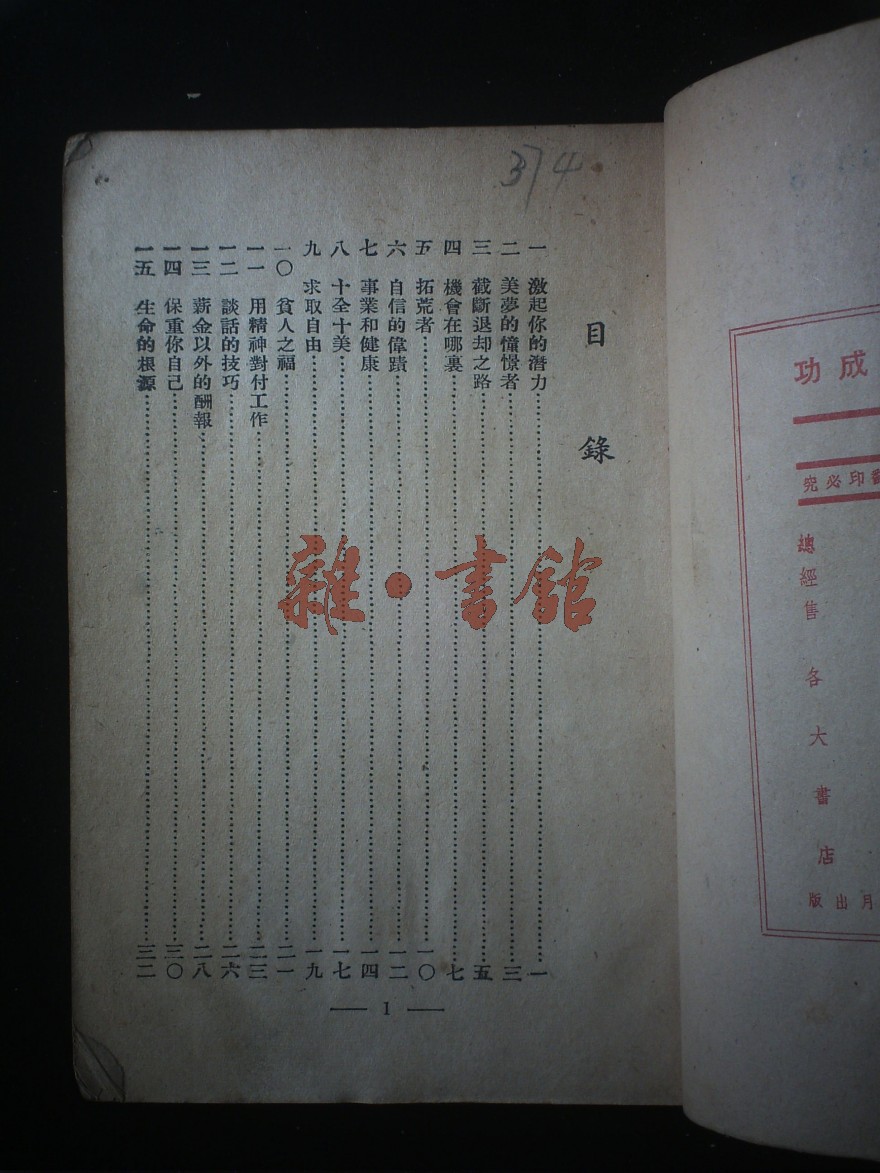 374
目錄
一 激起你的潛力 一
二 美夢的憧憬者 三
三 截斷退却之路 五
四 機會在哪裏 七
五 拓荒者 一〇
六 自信的偉蹟 一二
七 事業和健康 一四
八 十全十美 一七
九 求取自由 一九
一〇 貧人之福 二一
一一 用精神對付工作 二三
一二 談話的技巧 二六
一三 薪金以外的酬報 二八
一四 保重你自己 三〇
一五 生命的根源 三二
— 1 —
雜·書館
功成
究必印翻
總經售 各大書店
版出月